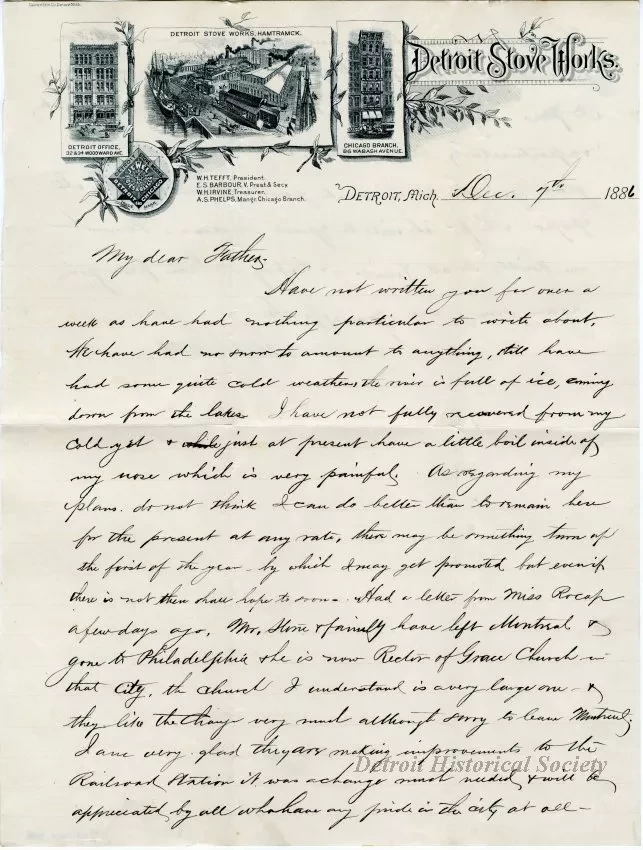 DETROIT STOVE WORKS, HAMTRAMCK.
Detroit Stove Works.
DETROIT OFFICE,
32 & 34 WOODWARD AVE.
CHICAGO BRANCH,
86 WABASH AVENUE.
W.H. TEFFT, President.
E.S. BARBOUR, V. Prest & Secy.
W.H. IRVINE, Treasurer.
A.S. PHELPS, Mangr. Chicago Branch.
Detroit, Mich. Dec. 7th 1886
My dear Father,
Have not written you for over a
week as have had nothing particular to write about,
We have had no snow to amount to anything, still have
had some quite cold weather, the river is full of ice, coming
down from the lakes. I have not fully recovered from my
cold yet & while just at present have a little boil inside of
my nose which is very painful. As regarding my
plans. do not think I can do better than to remain here
for the present at any rate, there may be something turn up
the first of the year - by which I may get promoted but even if
there is not then shall hope to soon -. Had a letter from Miss Rocap
a few days ago, Mr. Stone & family have left Montreal &
gone to Philadelphia & he is now Rector of Grace Church in
that City, the church I understand is a very large one - &
they like the change very much although sorry to leave Montreal,
I am very glad they are making improvements to the
Railroad Station it was a change much needed & will be
appreciated by all who have any pride in the city at all -
Detroit Historical Society